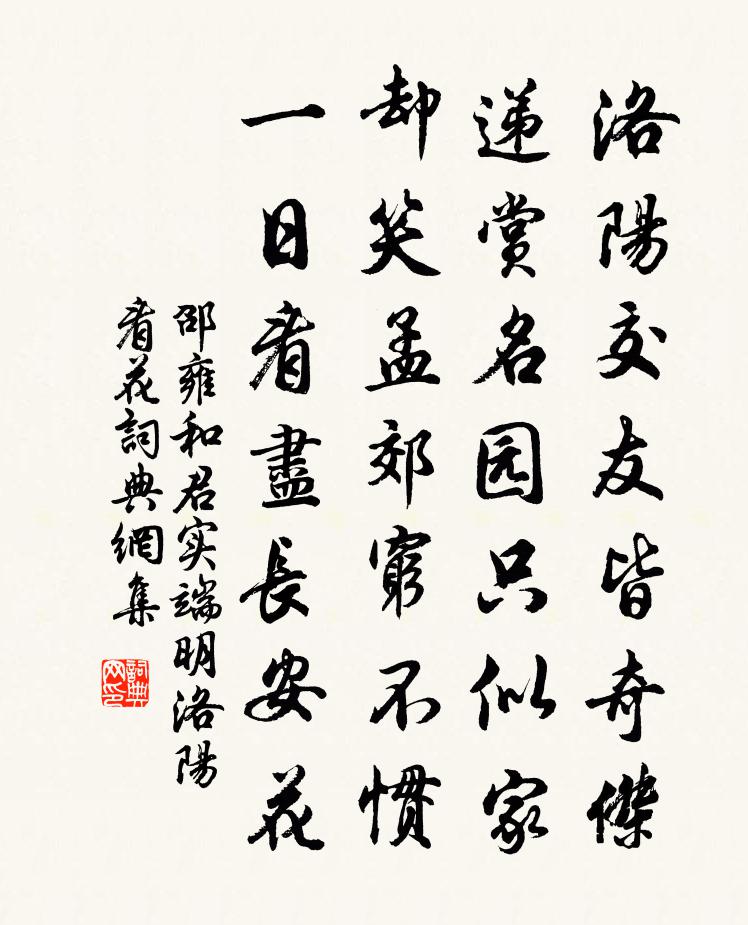 洛陽交友皆奇傑
遞賞名园只似家
却笑孟郊窮不慣
一日看盡長安花
邵雍和君实端明洛陽
看花詞典網集
詞典网印